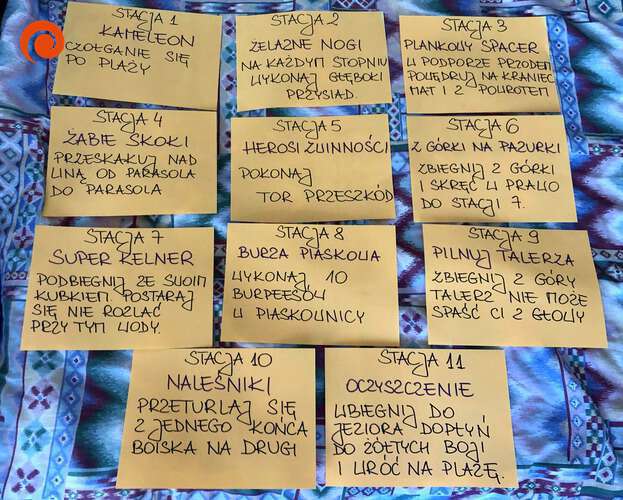 STACJA 1
KAMELEON
CZOŁGANIE SIĘ
PO PLAŻY
STACJA 2
ŻELAZNE NOGI
NA KAŻDYM STOPNIU
WYKONAJ GŁĘBOKI
PRZYSIAD.
STACJA 3
PLANKOWY SPACER
W PODPORZE PRZODEM
POWĘDRUJ NA KRANIEC
MAT I Z POWROTEM
STACJA 4
ŻABIE SKOKI
PRZESKAKUJ NAD
LINĄ OD PARASOLA
DO PARASOLA
STACJA 5
HEROSI ZWINNOŚCI
POKONAJ
TOR PRZESZKÓD
STACJA 6
Z GÓRKI NA PAZURKI
ZBIEGNIJ Z GÓRKI
I SKRĘĆ W PRAWO
DO STACJI 7.
STACJA 7
SUPER KELNER
PODBIEGNIJ ZE SWOIM
KUBKIEM POSTARAJ
SIĘ NIE ROZLAĆ
PRZY TYM WODY.
STACJA 8
BURZA PIASKOWA
WYKONAJ 10
BURPEESÓW
W PIASKOWNICY
STACJA 9
PILNUJ TALERZA
ZBIEGNIJ Z GÓRY
TALERZ NIE MOŻE
SPAŚĆ CI Z GŁOWY
STACJA 10
NALEŚNIKI
PRZETURLAJ SIĘ
Z JEDNEGO KOŃCA
BOISKA NA DRUGI
STACJA 11
OCZYSZCZENIE
WBIEGNIJ DO
JEZIORA DOPŁYŃ
DO ŻÓŁTYCH BOJI
I WRÓĆ NA PLAŻĘ.